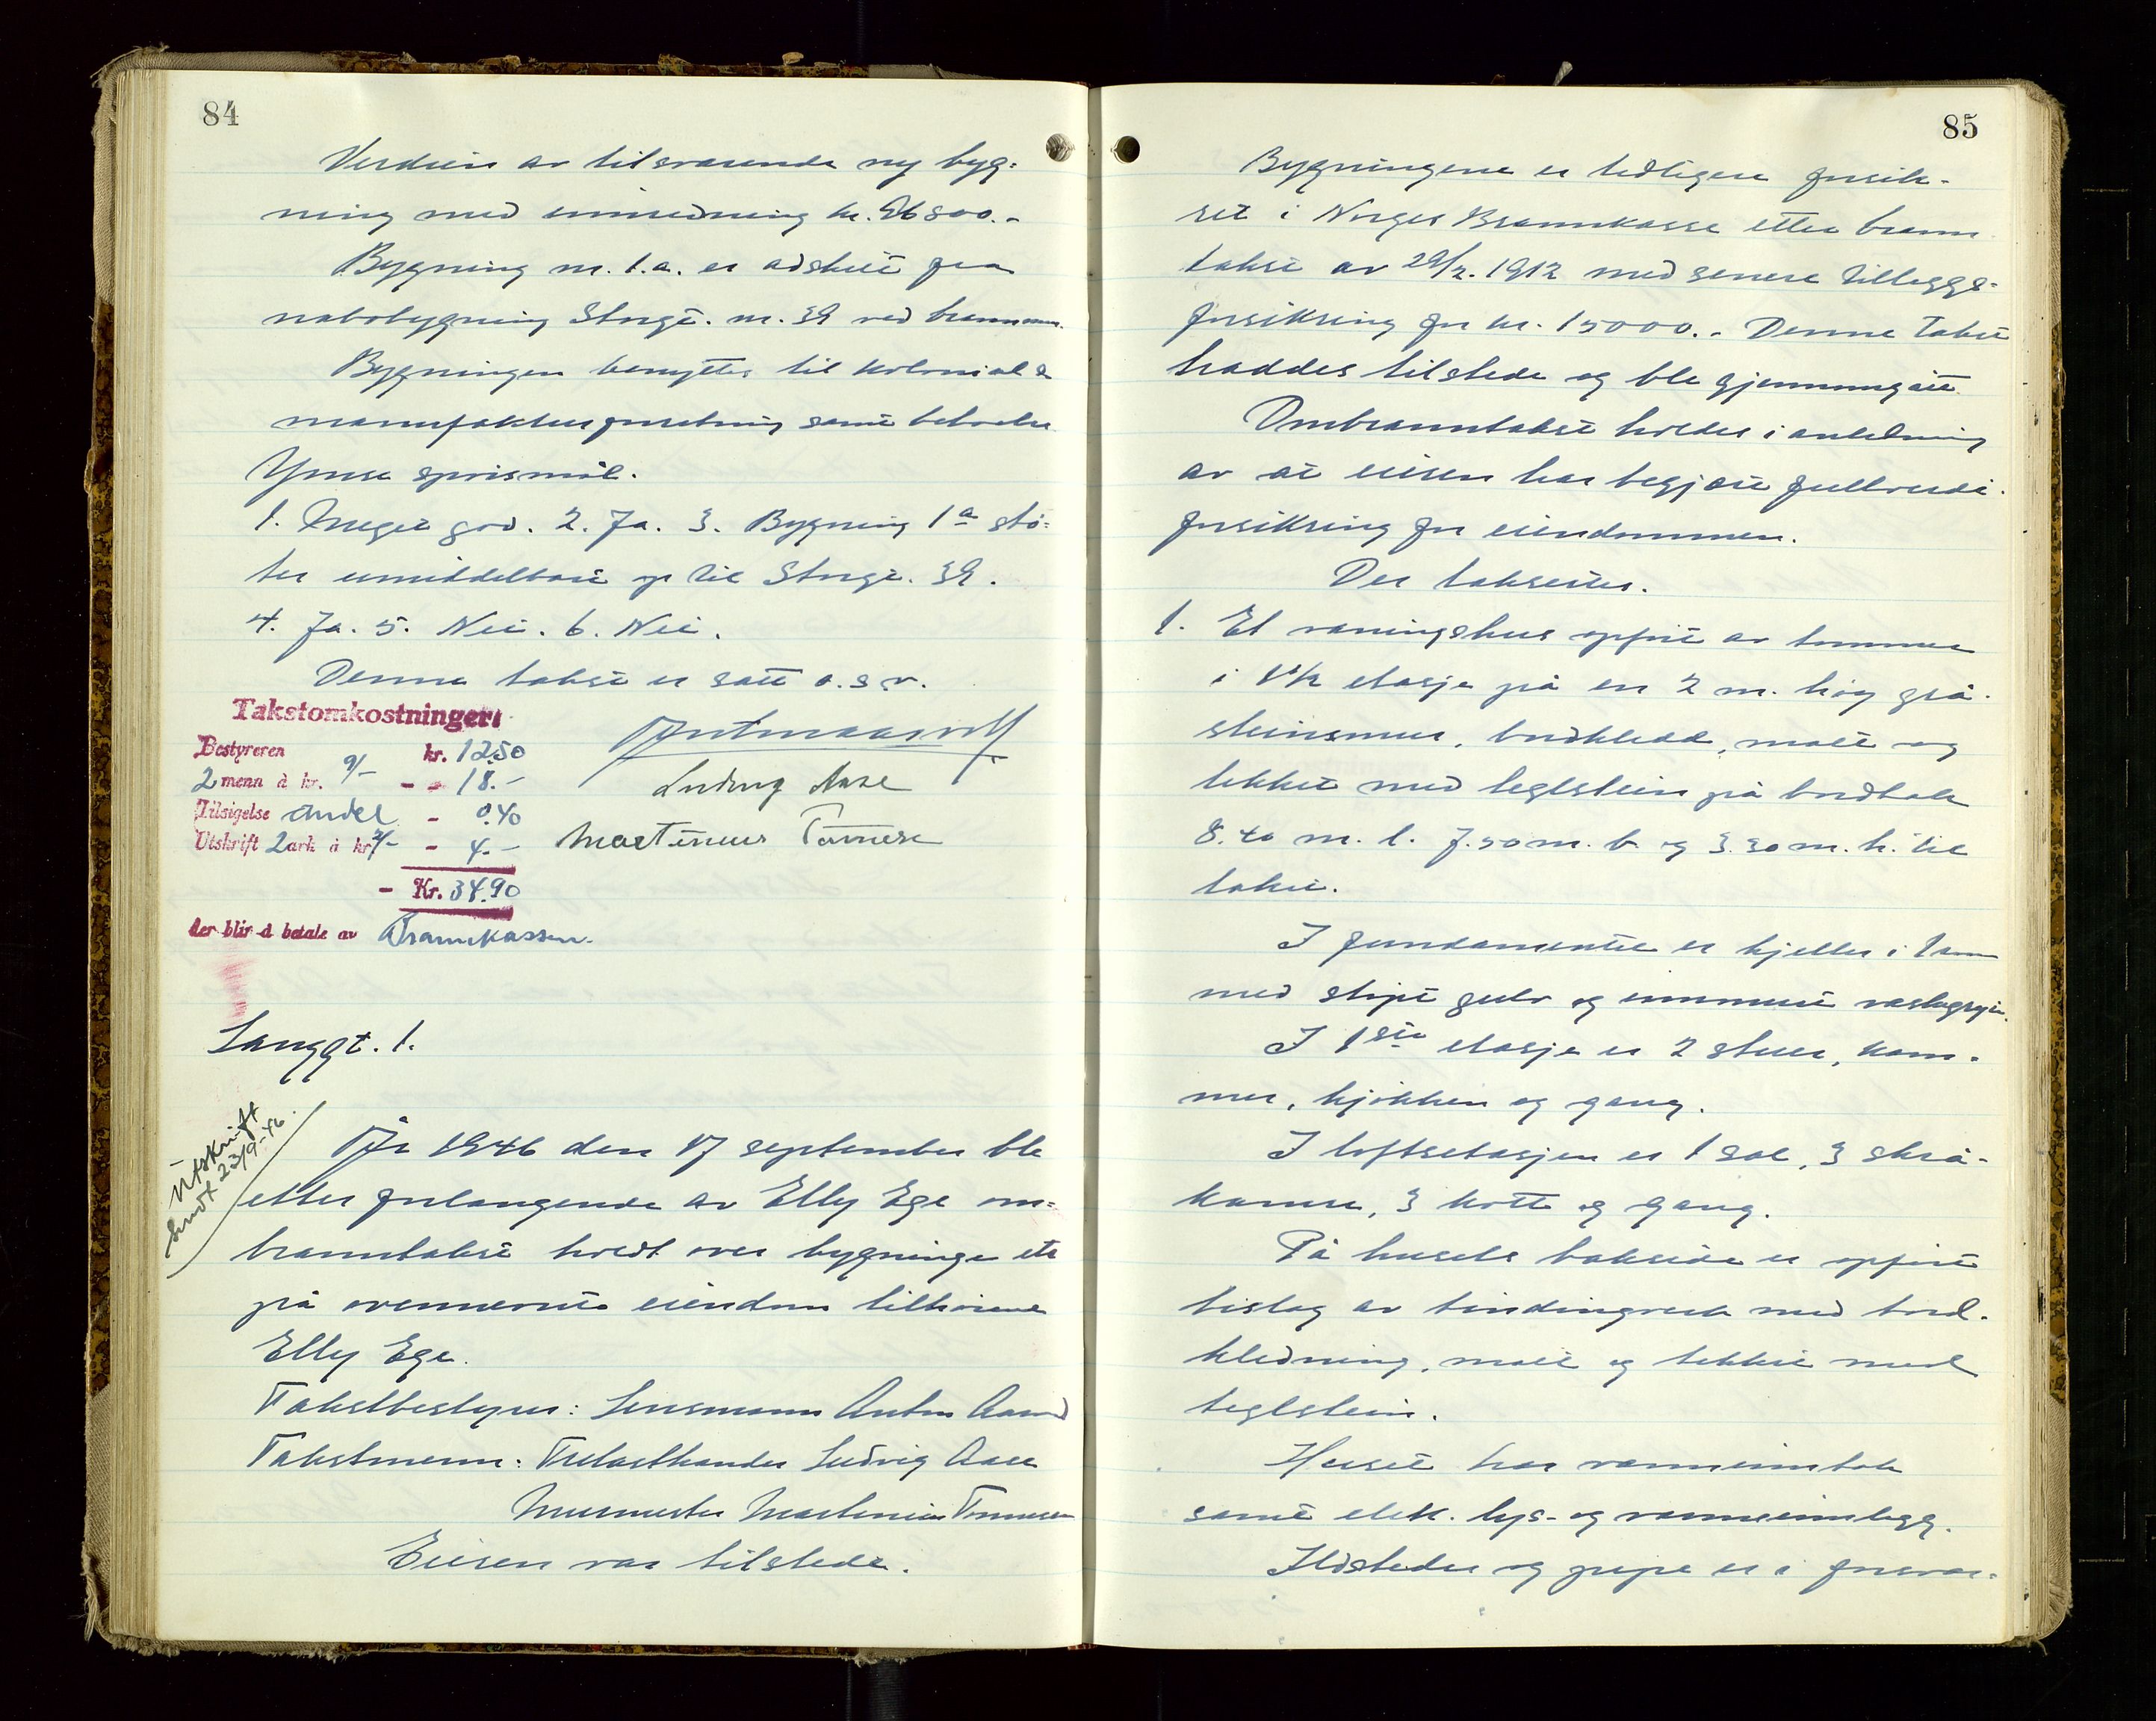 84
Verdien av tilsvarende ny byg-
ning med innredning kr. 26800.-
Bygning nr. 1.a. er adskilt fra
nabobygning Storgt. nr. 39 ved brannmur.
Bygningen benyttes til kolonial &
manufakturforretning samt beboelse
Ymse spørsmål.
1. Meget god. 2. Ja. 3. Bygning 1a stö-
ter umiddelbart op til Storgt. 39.
4. Ja. 5. Nei. 6. Nei.
Denne takst er satt o.s.v.
Takstomkostninger:
Bestyreren kr. 12.50
2 menn à kr. 9/- - - 18.-
Tilsigelse andel - 0.40
Utskrift 2 ark à kr 2/- - 4.-
- Kr. 34.90
der blir å betale av Brannkassen.
Ludvig Aase
Martinius Tönnesen
Langgt. 1.
Utskrift
sendt 23/9-46.
År 1946 den 17 september ble
etter forlangende av Elly Ege om-
branntakst holdt over bygninge etc
på ovennevnte eiendom tilhörende
Elly Ege.
Takstbestyrer: Lensmann Anton
Takstmenn: Trelasthandler Ludvig Aase
Murmester Martinius Tönnesen
Eieren var tilstede.
85
Bygningene er tidligere forsik-
ret i Norges Brannkasse etter brann
takst av 29/2. 1912 med senere tilleggs-
forsikring for kr. 15000.- Denne takst
haddes tilstede og ble gjennomgått.
Ombranntakst holdes i anledning
av at eieren har begjært fullverdi-
forsikring for eiendommen.
Der takseres.
1. Et våningshus opfört av tømmer
i 1½ etasje på en 2 m. høg grå-
steinsmur, bordkledd, malt og
tekket med teglstein på bordtak
8.40 m. l. 7.50 m. b. og 3.30 m. h. til
taket.
I fundamentet er kjeller i 1 rom
med støpt gulv og innmurt vaskegryte.
I 1ste etasje er 2 stuer, kam-
mer, kjökken og gang.
I loftsetasjen er 1 sal, 3 skrå-
kamre, 3 kott og gang.
På husets bakside er opfört
bislag av bindingverk med bord-
kledning, malt og tekket med
teglstein.
Huset har vanninntak
samt elek. lys- og varmeinnlegg.
Ildsteder og piper er i forsvar-